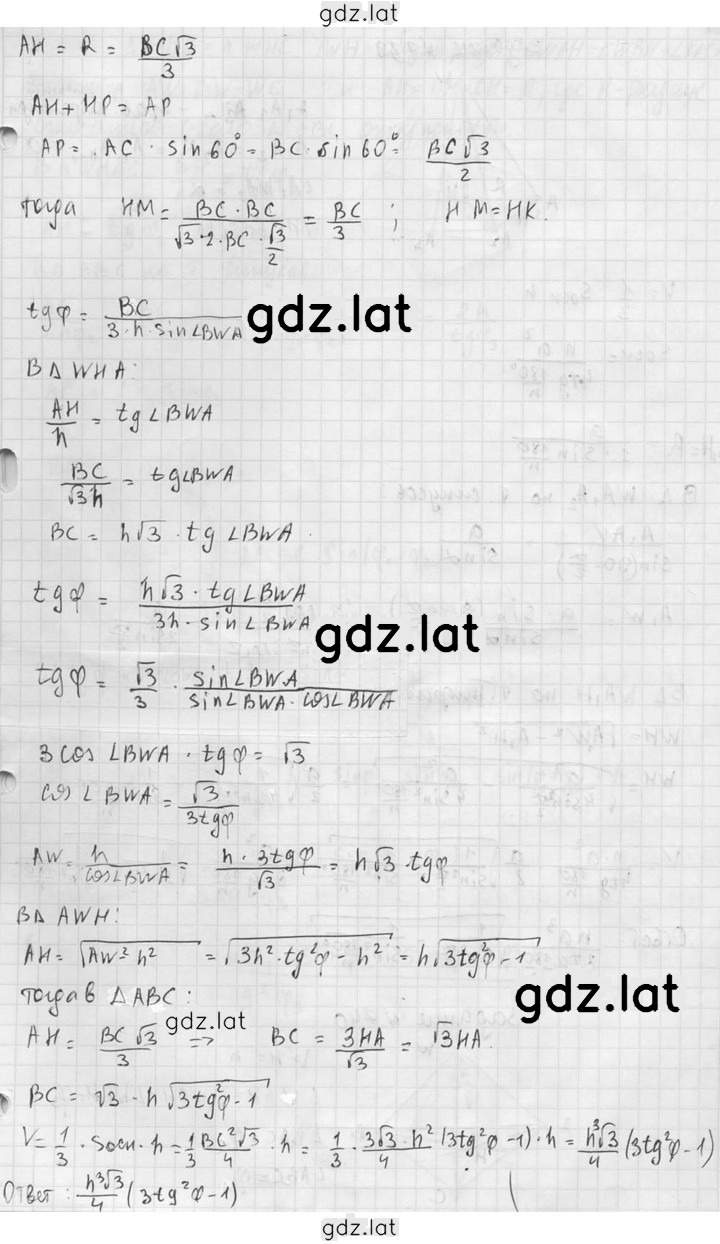 gdz.lat
AH = R = BC√3/3
AH + HP = AP
AP = AC · sin 60° = BC · sin 60° = BC√3/2
тогда HM = BC · BC/(√3 · 2 · BC · √3/2) = BC/3 ; HM = HK.
tgφ = BC/(3 · h · sin∠BWA)
gdz.lat
В Δ WHA:
AH/h = tg∠BWA
BC/(√3h) = tg∠BWA
BC = h√3 · tg∠BWA.
tgφ = h√3 · tg∠BWA/(3h · sin∠BWA)
gdz.lat
tgφ = √3/3 · sin∠BWA/(sin∠BWA · cos∠BWA)
3 cos∠BWA · tgφ = √3
cos∠BWA = √3/(3tgφ)
AW = h/cos∠BWA = h · 3tgφ/√3 = h√3 · tgφ
В Δ AWH:
AH = √(AW² - h²) = √(3h² · tg²φ - h²) = h√(3tg²φ - 1)
тогда в ΔABC:
gdz.lat
AH = BC√3/3 => BC = 3HA/√3 = √3HA.
gdz.lat
BC = √3 · h√(3tg²φ - 1)
V = 1/3 · Sосн · h = 1/3 BC²√3/4 · h = 1/3 · 3√3 · h²/4 (3tg²φ - 1) · h = h³√3/4 (3tg²φ - 1)
Ответ: h³√3/4 (3tg²φ - 1)
gdz.lat